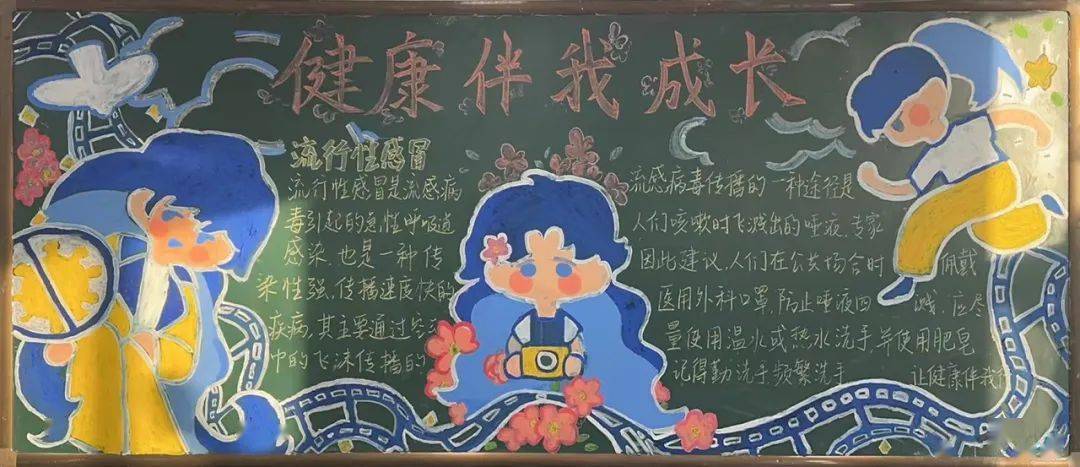 健康伴我成长
流行性感冒
流行性感冒是流感病
毒引起的急性呼吸道
感染,也是一种传
染性强、传播速度快的
疾病,其主要通过
中的飞沫传播的
流感病毒传播的一种途径是
人们咳嗽时飞溅出的唾液,专家
因此建议,人们在公共场合时 佩戴
医用外科口罩,防止唾液四 溅,应尽
量使用温水或热水洗手,并使用肥皂
记得勤洗手频繁洗手 让健康伴我